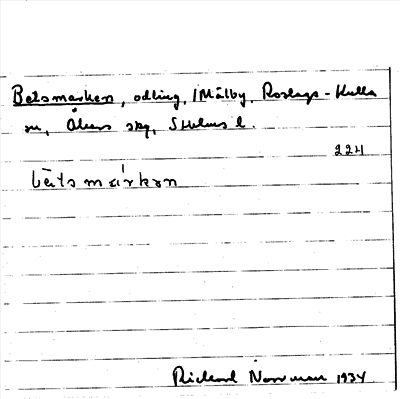 Betsmarken, odling, i Målby, Roslags-Kulla
sn, Åkers skg, Sthlms l.
224
bḗtsmárkən
Rickard Norrman 1934